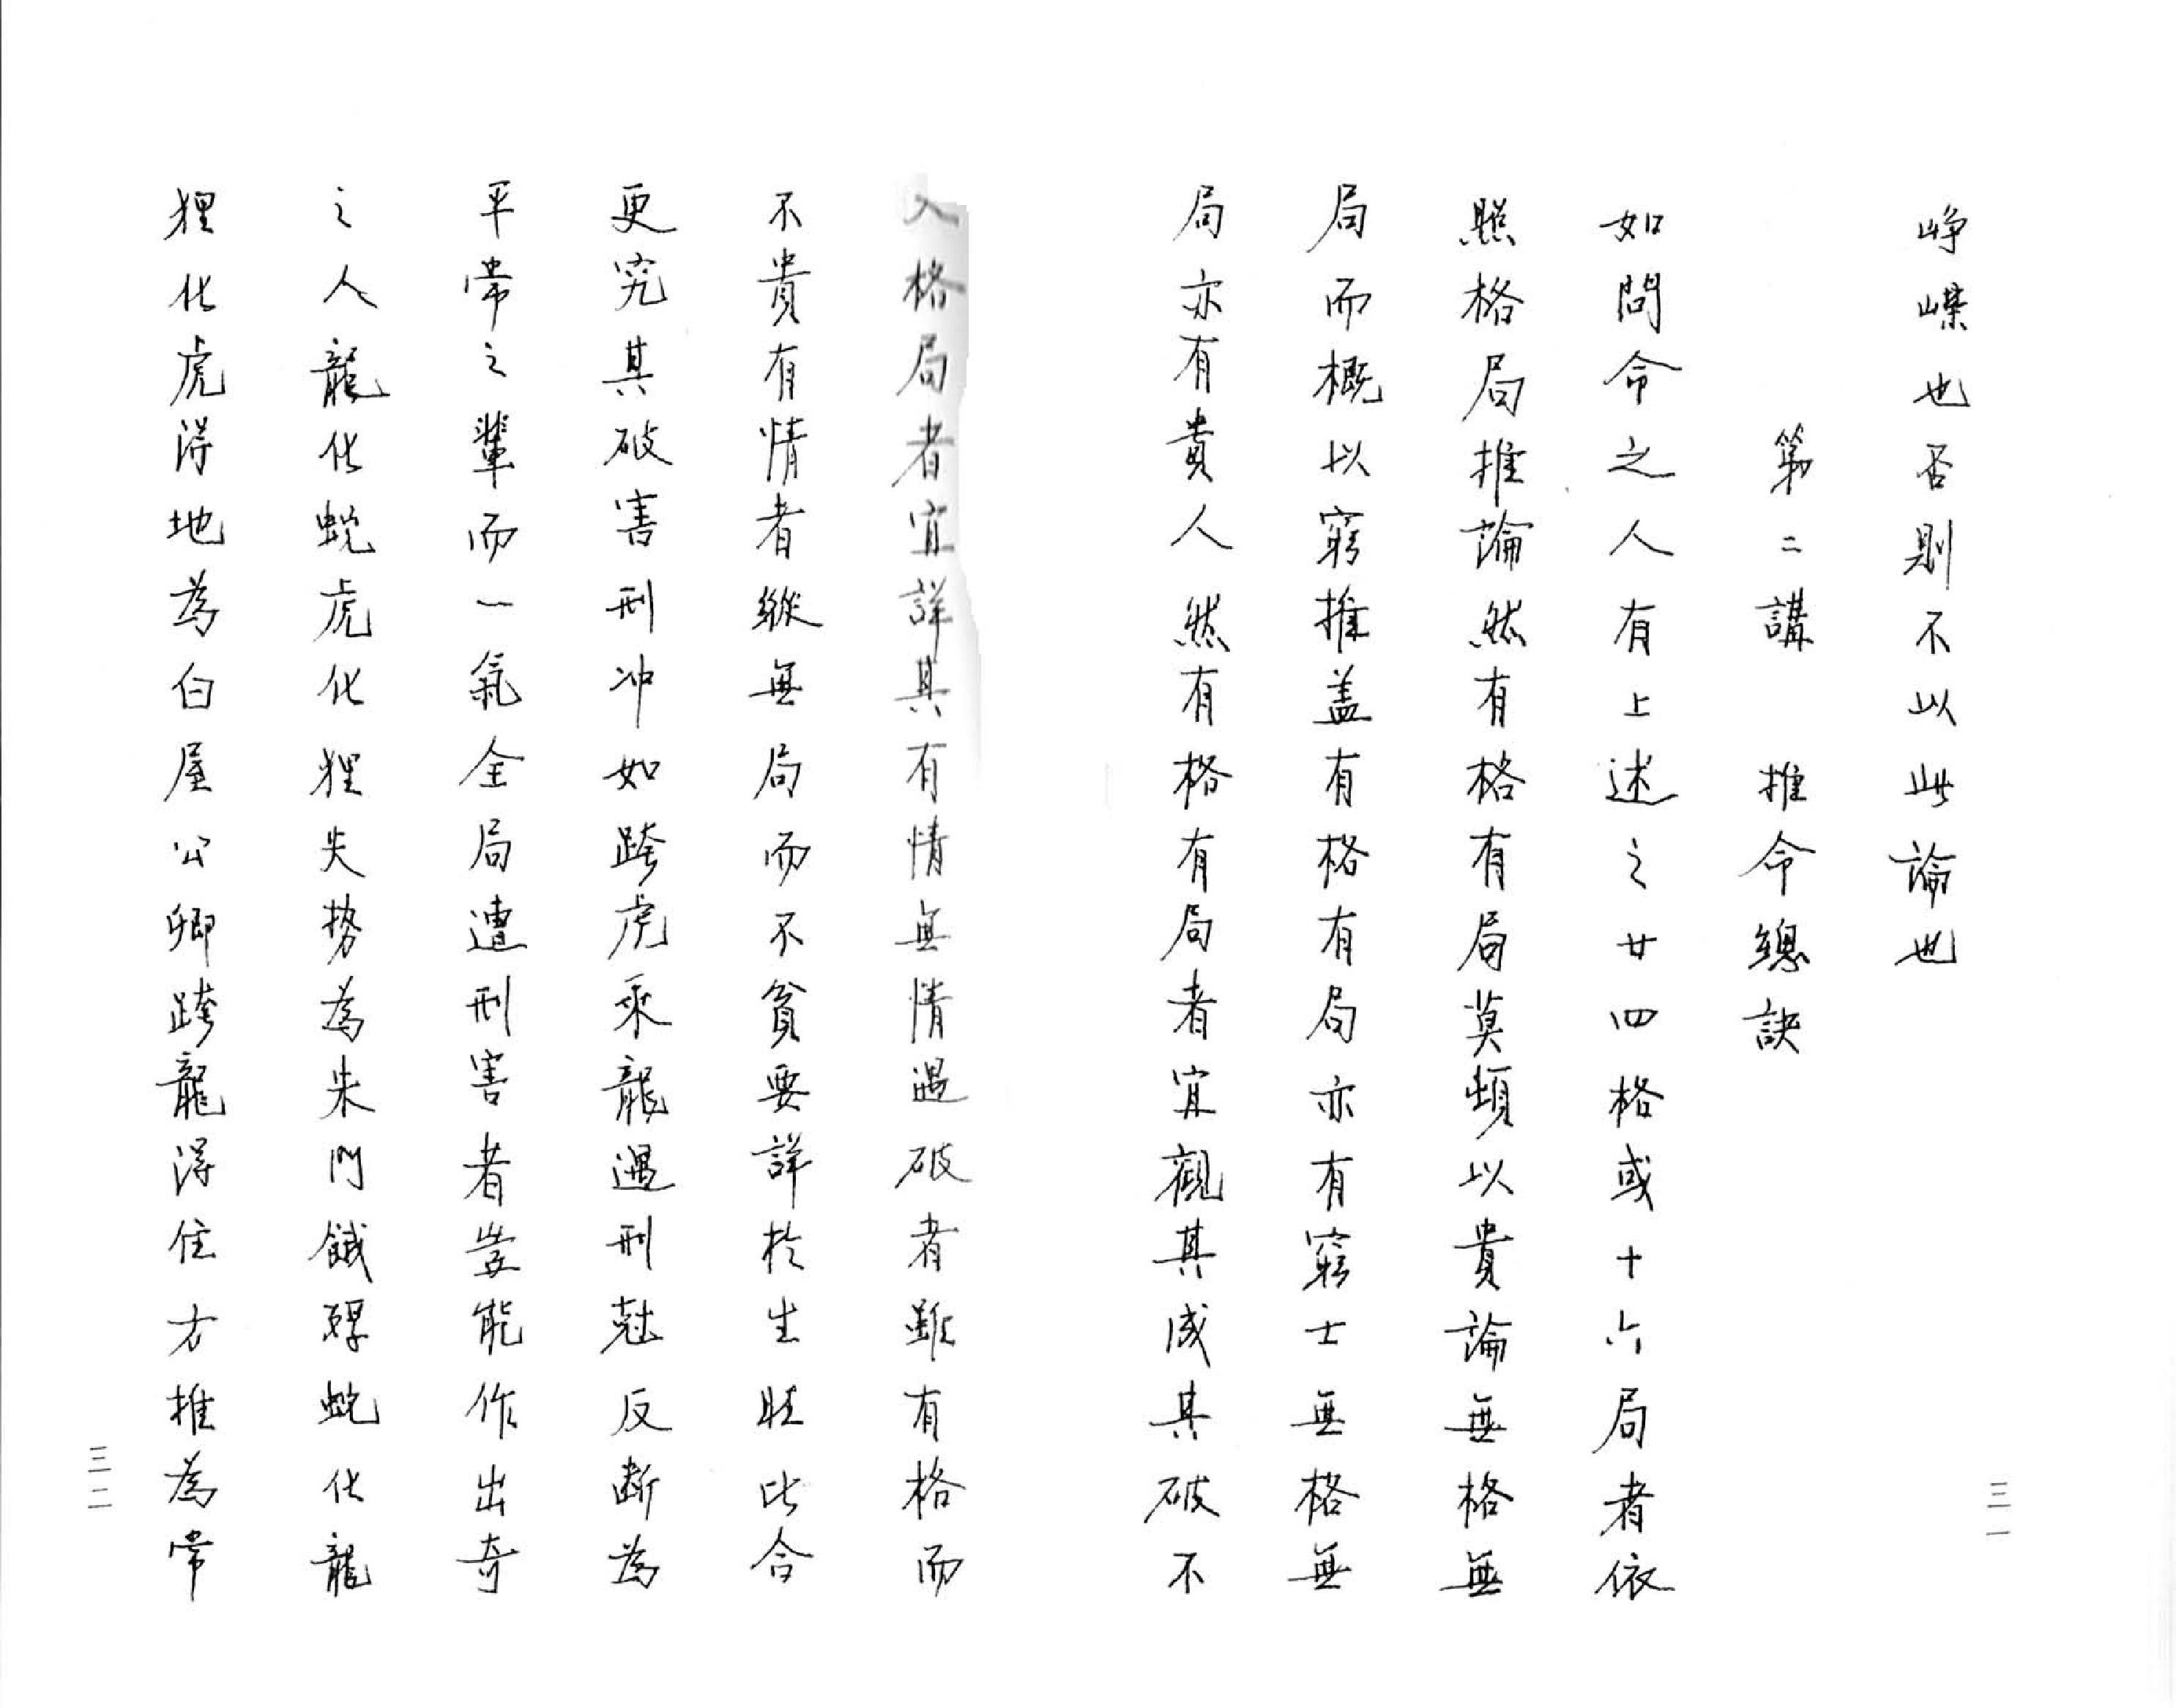 崢嶸也否則不以此論也
第二講 推命總訣
如問命之人有上述之廿四格或十六局者依
照格局推論然有格有局莫頻以貴論無格無
局而概以窮推蓋有格有局亦有窮士無格無
局亦有貴人然有格有局者宜觀其成其破不
入格局者宜詳其有情無情遇破者雖有格而
不貴有情者縱無局而不貧要詳於生旺比合
更究其破害刑冲如跨虎乘龍遇刑尅反斷為
平常之輩而一氣全局遭刑害者豈能作出奇
之人龍化蛇虎化狸失势為朱門餓殍蛇化龍
狸化虎得地為白屋公卿跨龍得住方推為常
三一
三二